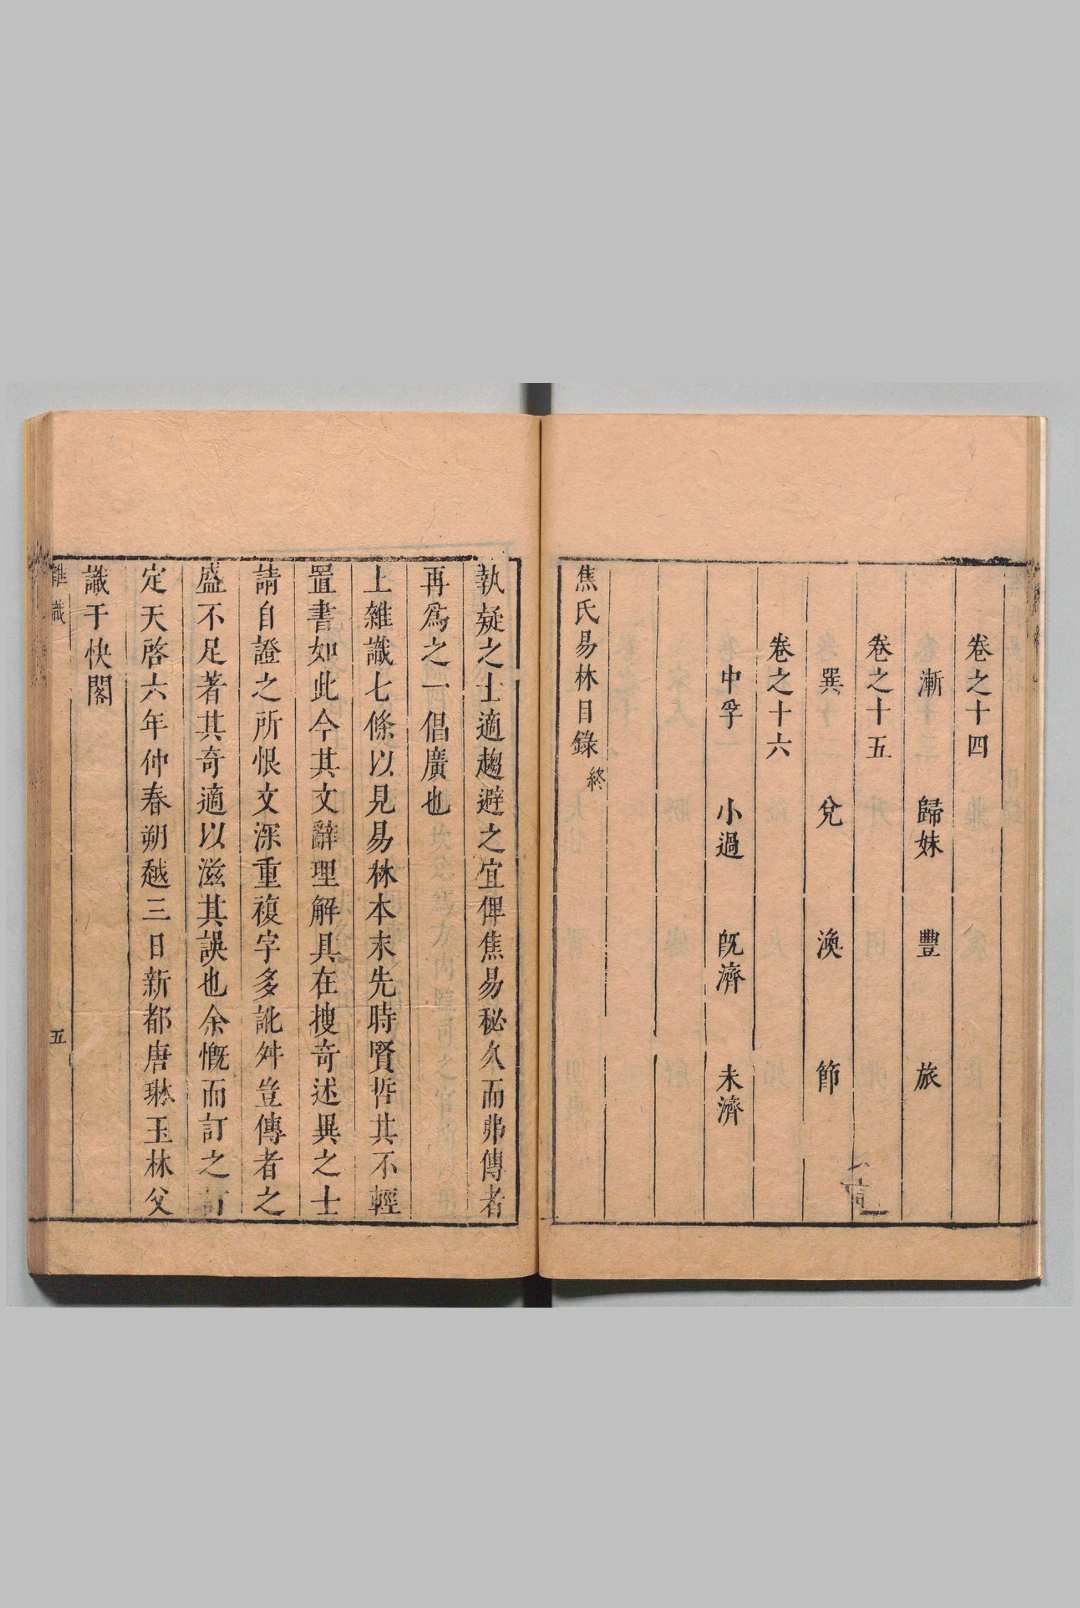 卷之十四
漸 歸妹 豐 旅
卷之十五
巽 兌 渙 節
卷之十六
中孚 小過 旣濟 未濟
焦氏易林目錄終
執疑之士適趨避之宜俾焦易秘久而弗傳者
再爲之一倡廣也
上雜識七條以見易林本末先時賢哲其不輕
置書如此今其文辭理解具在搜奇述異之士
請自證之所恨文深重複字多訛舛豈傳者之
盛不足著其奇適以滋其誤也余慨而訂之訂
定天啓六年仲春朔越三日新都唐琳玉林父
識于快閣
雜識
五